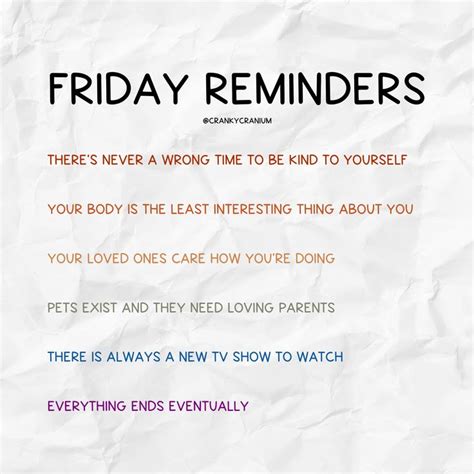 FRIDAY REMINDERS
@CRANKYCRANIUM
THERE'S NEVER A WRONG TIME TO BE KIND TO YOURSELF
YOUR BODY IS THE LEAST INTERESTING THING ABOUT YOU
YOUR LOVED ONES CARE HOW YOU'RE DOING
PETS EXIST AND THEY NEED LOVING PARENTS
THERE IS ALWAYS A NEW TV SHOW TO WATCH
EVERYTHING ENDS EVENTUALLY